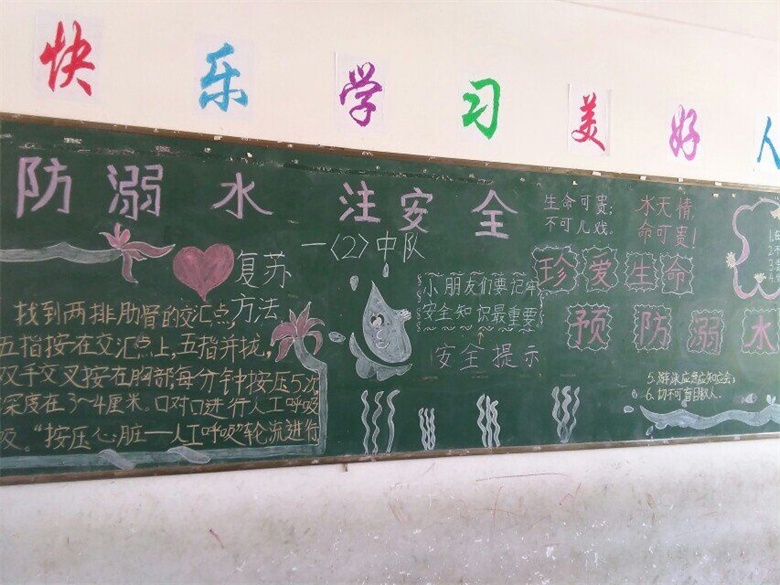 快乐学习美好人
防溺水 注安全
一〈2〉中队
复苏
方法
找到两排肋骨的交汇点,
五指按在交汇点上,五指并拢,
双手交叉按在胸部,每分钟按压5次
深度在3~4厘米。口对口进行人工呼吸
"按压心脏——人工呼吸"轮流进行
小朋友们要记牢
安全知识最重要
安全提示
生命可贵;
不可儿戏.
水无情,
命可贵!
珍爱生命
预防溺水
5.游泳应
6.切不可盲目救人.